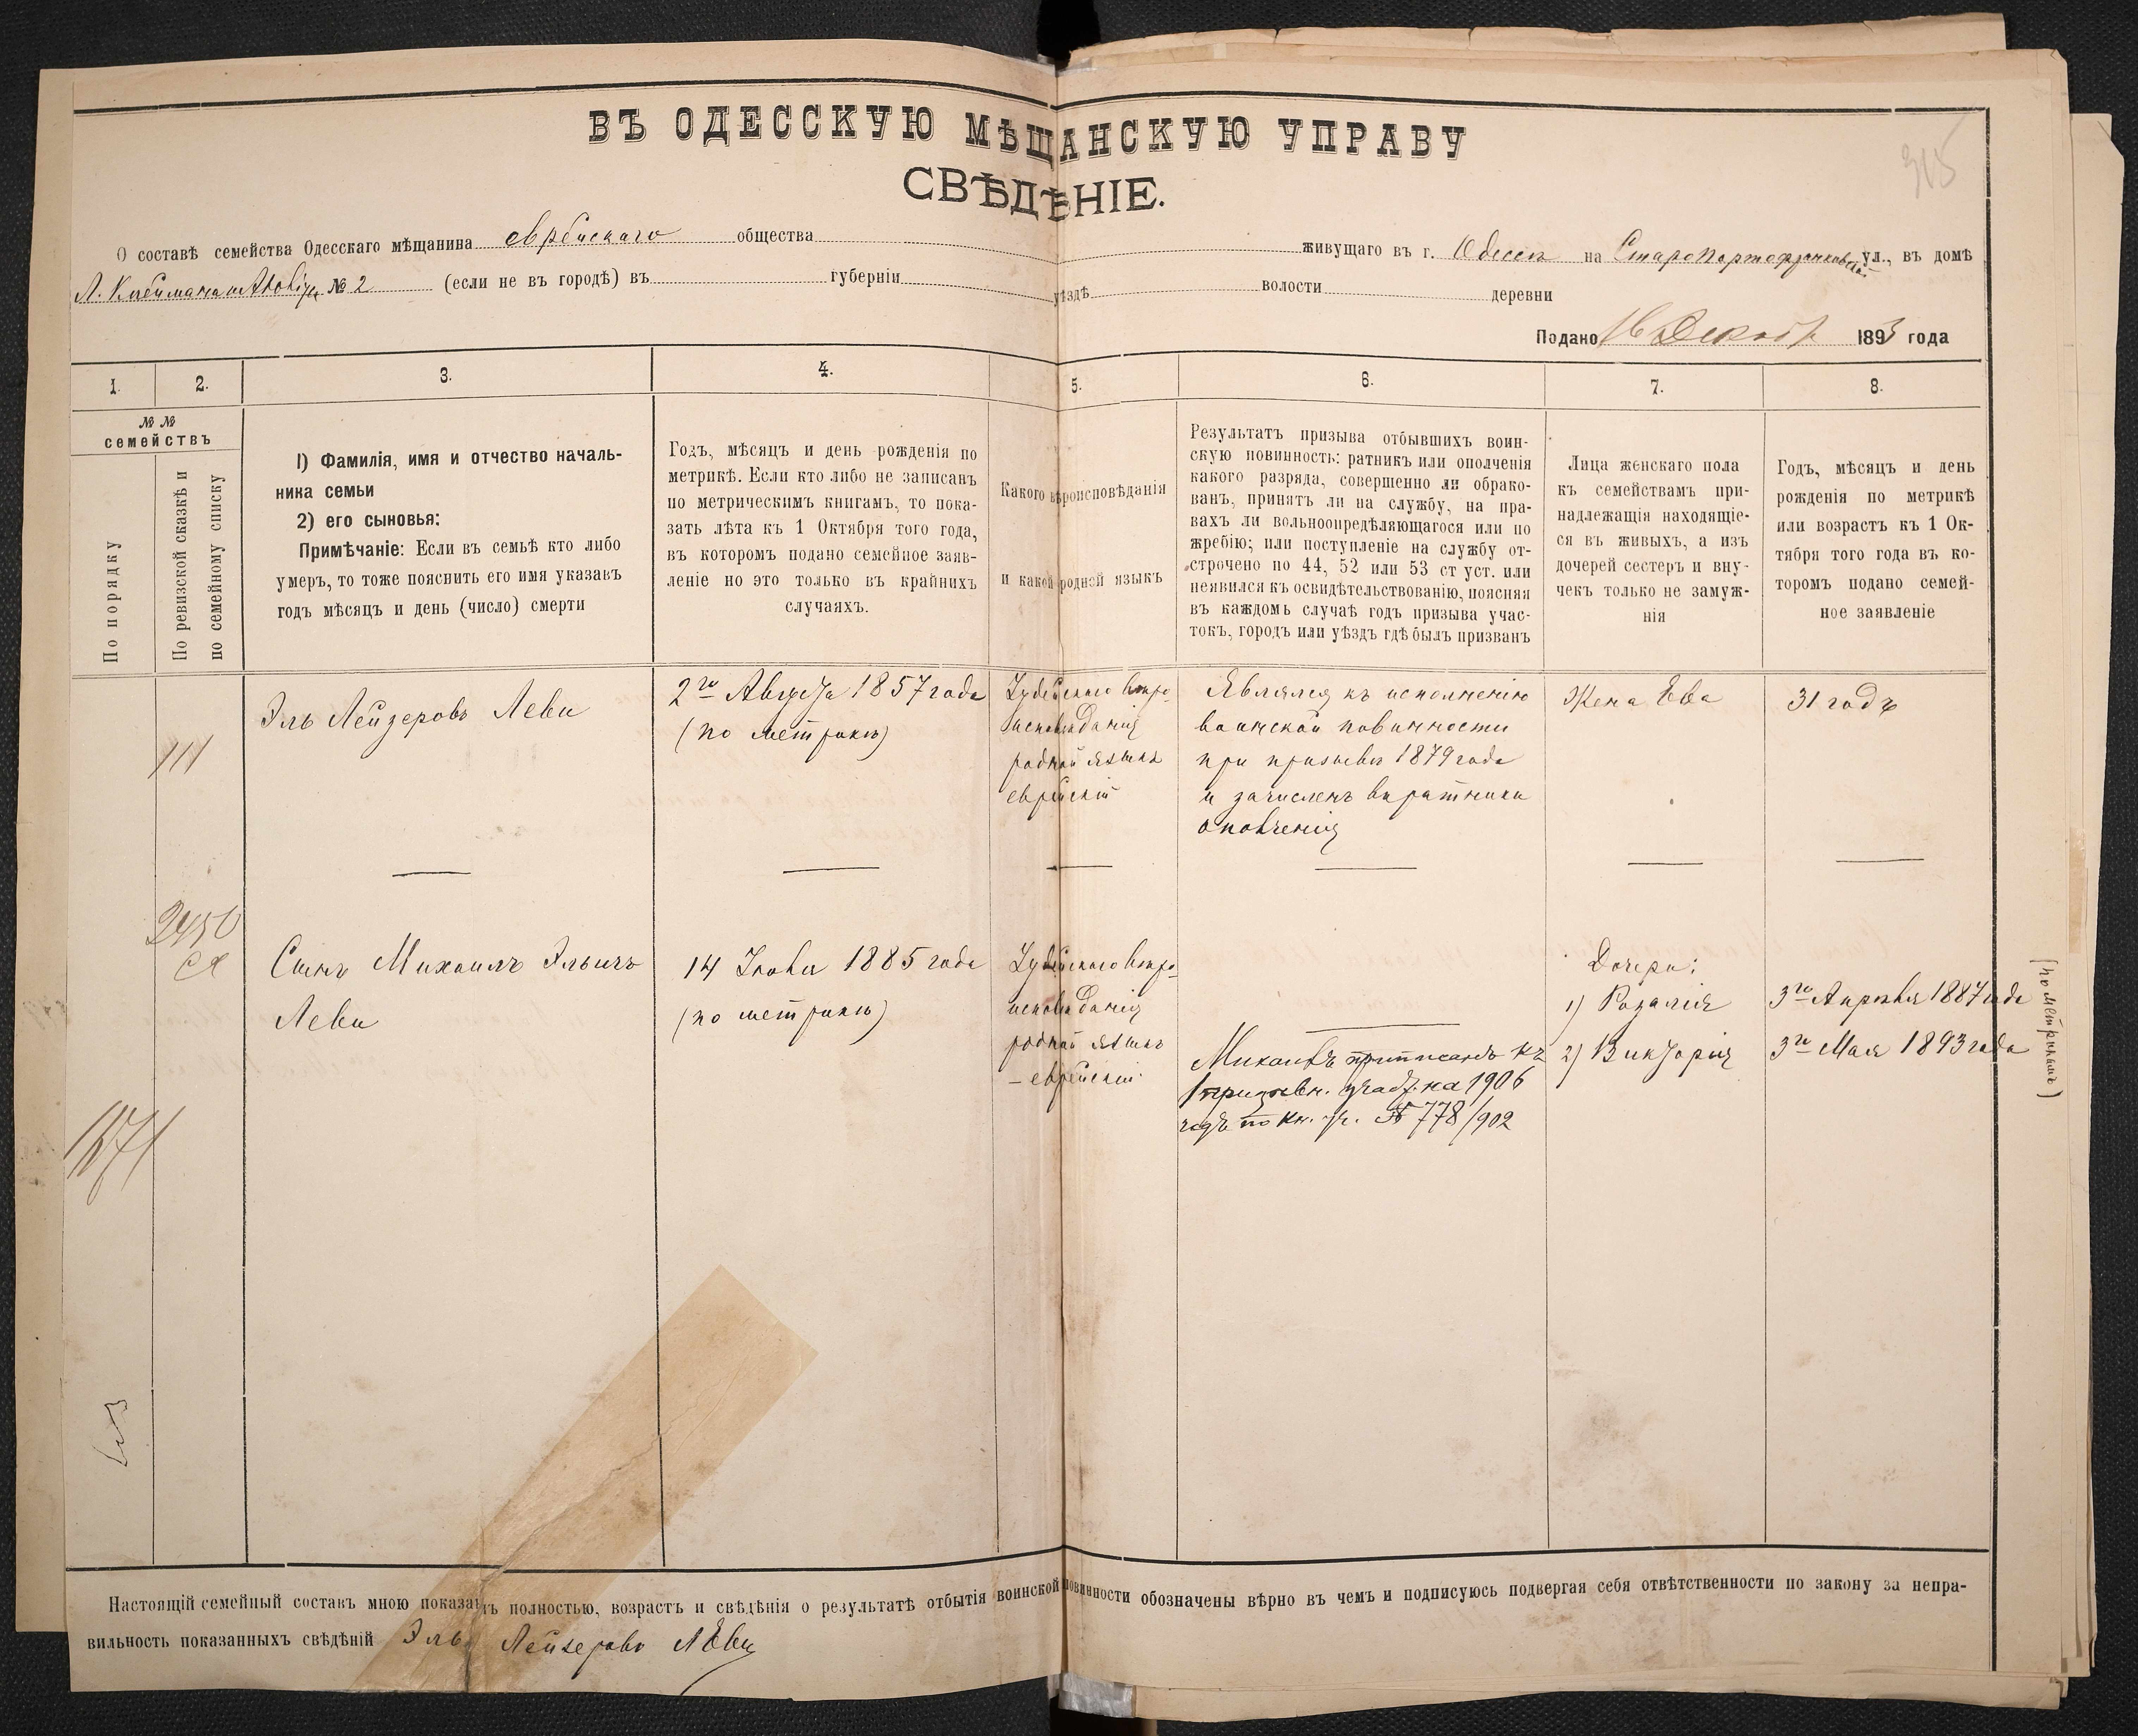 315
ВЪ ОДЕССКУЮ МѢЩАНСКУЮ УПРАВУ
СВѢДѢНІЕ.
О составѣ семейства Одесскаго мѣщанина еврейскаго общества живущаго въ г. Одессѣ на Старопортофранковской ул., въ домѣ
№ 2 (если не въ городѣ) въ губерніи уѣздѣ волости деревни
Подано 16 Декаб. 1893 года
1. 2. 3. 4. 5. 6. 7. 8.
№ № семействъ
По порядку
По ревизской сказкѣ и
по семейному списку
1) Фамилія, имя и отчество началь-
ника семьи
2) его сыновья:
Примѣчаніе: Если въ семьѣ кто либо
умеръ, то тоже пояснить его имя указавъ
годъ мѣсяцъ и день (число) смерти
Годъ, мѣсяцъ и день рожденія по
метрикѣ. Если кто либо не записанъ
по метрическимъ книгамъ, то пока-
зать лѣта къ 1 Октября того года,
въ которомъ подано семейное заяв-
леніе но это только въ крайнихъ
случаяхъ.
Какого вѣроисповѣданія
и какой родной языкъ
Результатъ призыва отбывшихъ воин-
скую повинность: ратникъ или ополченія
какого разряда, совершенно ли обрако-
ванъ, принятъ ли на службу, на пра-
вахъ ли вольноопредѣляющагося или по
жребію; или поступленіе на службу от-
строчено по 44, 52 или 53 ст уст. или
неявился къ освидѣтельствованію, поясняя
въ каждомъ случаѣ годъ призыва учас-
токъ, городъ или уѣздъ гдѣ былъ призванъ
Лица женскаго пола
къ семействамъ при-
надлежащія находящіе-
ся въ живыхъ, а изъ
дочерей сестеръ и вну-
чекъ только не замуж-
нія
Годъ, мѣсяцъ и день
рожденія по метрикѣ
или возрастъ къ 1 Ок-
тября того года въ ко-
торомъ подано семей-
ное заявленіе
111
Эль Лейзеровъ Леви
2го Августа 1857 года
(по метрикѣ)
Іудейскаго вѣро-
исповѣданія
родной языкъ
еврейскій
Являлся къ исполненію
воинской повинности
при призывѣ 1879 года
и зачисленъ въ ратники
ополченія
Жена Ева
31 годъ
2450
Сынъ Михаилъ Эльичъ
Леви
14 Іюля 1885 года
(по метрикѣ)
Іудейскаго вѣро-
исповѣданія
родной языкъ
– еврейскій
Михаилъ приписанъ къ
1 призывн. участ. на 1906
годъ по кн. № 778/902
Дочери:
1) Розалія
2) Викторія
3го Апрѣля 1887 года
3го Мая 1893 года
(по метрикамъ)
1671
Настоящій семейный составъ мною показанъ полностью, возрастъ и свѣдѣнія о результатѣ отбытія воинской повинности обозначены вѣрно въ чемъ и подписуюсь подвергая себя отвѣтственности по закону за непра-
вильность показанныхъ свѣдѣній Эль Лейзеровъ Леви